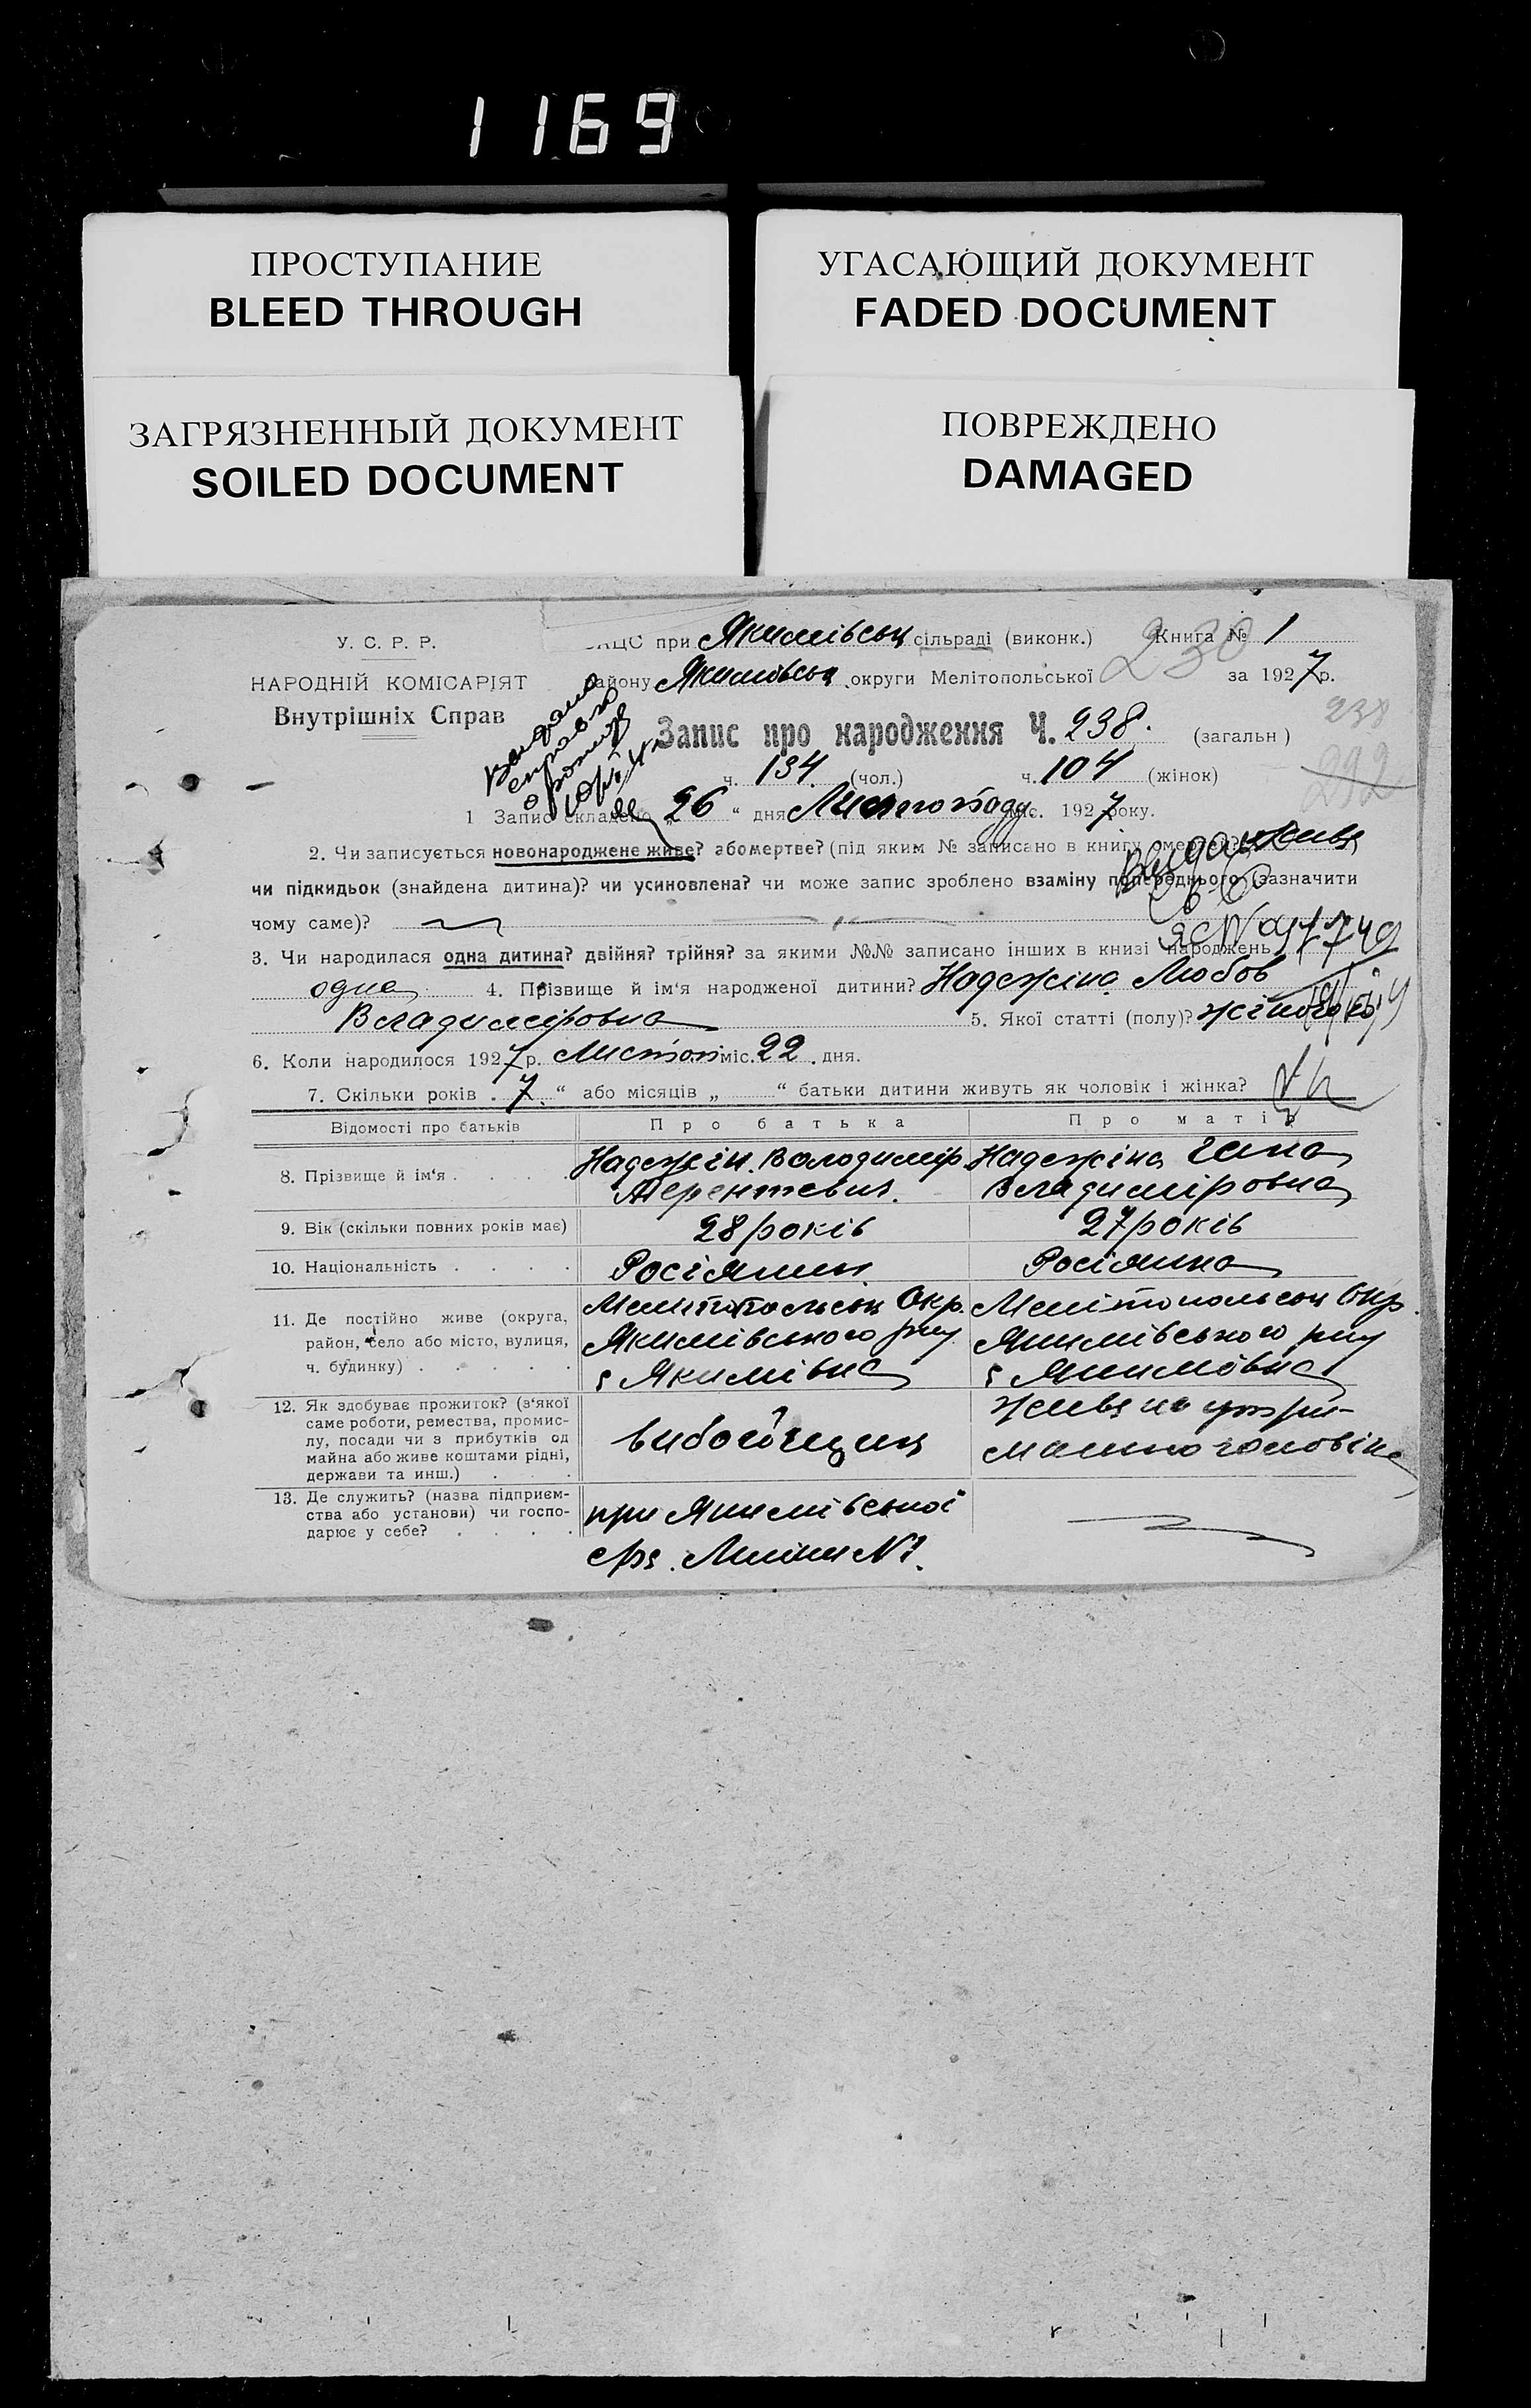 1169
ПРОСТУПАНИЕ
BLEED THROUGH
УГАСАЮЩИЙ ДОКУМЕНТ
FADED DOCUMENT
ЗАГРЯЗНЕННЫЙ ДОКУМЕНТ
SOILED DOCUMENT
ПОВРЕЖДЕНО
DAMAGED
У. С. Р. Р.
НАРОДНІЙ КОМІСАРІЯТ
Внутрішніх Справ
АЦС при Якимівськ сільраді (виконк.) Книга № 1
230
району Якимівськ округи Мелітопольської за 1927 р.
238
Запис про народження Ч. 238. (загальн)
292
ч. 134 (чол.) ч. 104 (жінок)
1 Запис складено „26“ дня Листопаду міс. 1927 року.
2. Чи записується новонароджене живе? або мертве? (під яким № записано в книгу омертей?) живе
чи підкидьок (знайдена дитина)? чи усиновлена? чи може запис зроблено взаміну попереднього (зазначити
чому саме)?
3. Чи народилася одна дитина? двійня? трійня? за якими №№ записано інших в книзі народжень
одна 4. Прізвище й ім'я народженої дитини? Надежіна Любов
Владиміровна 5. Якої статті (полу)? жіночої
6. Коли народилося 1927 р. Листоп міс. 22 дня.
7. Скільки років „7“ або місяців „ “ батьки дитини живуть як чоловік і жінка?
Відомості про батьків Про батька Про матір
8. Прізвище й ім'я Надежін Володимір Надежіна Гана
Терентевич. Владиміровна
9. Вік (скільки повних років має) 28 років 27 років
10. Національність Росіянин Росіянка
11. Де постійно живе (округа, район, село або місто, вулиця, ч. будинку)
Мелітопольськ Окр. Мелітопольськ Окр.
Якимівського рну Якимівського рну
с Якимівка с Якимовка
12. Як здобуває прожиток? (з'якої
саме роботи, ремества, промис-
лу, посади чи з прибутків од
майна або живе коштами рідні,
держави та инш.)
живе на утри-
мання чоловіка
13. Де служить? (назва підприєм-
ства або установи) чи госпо-
дарює у себе?
при Якимівської
№1.